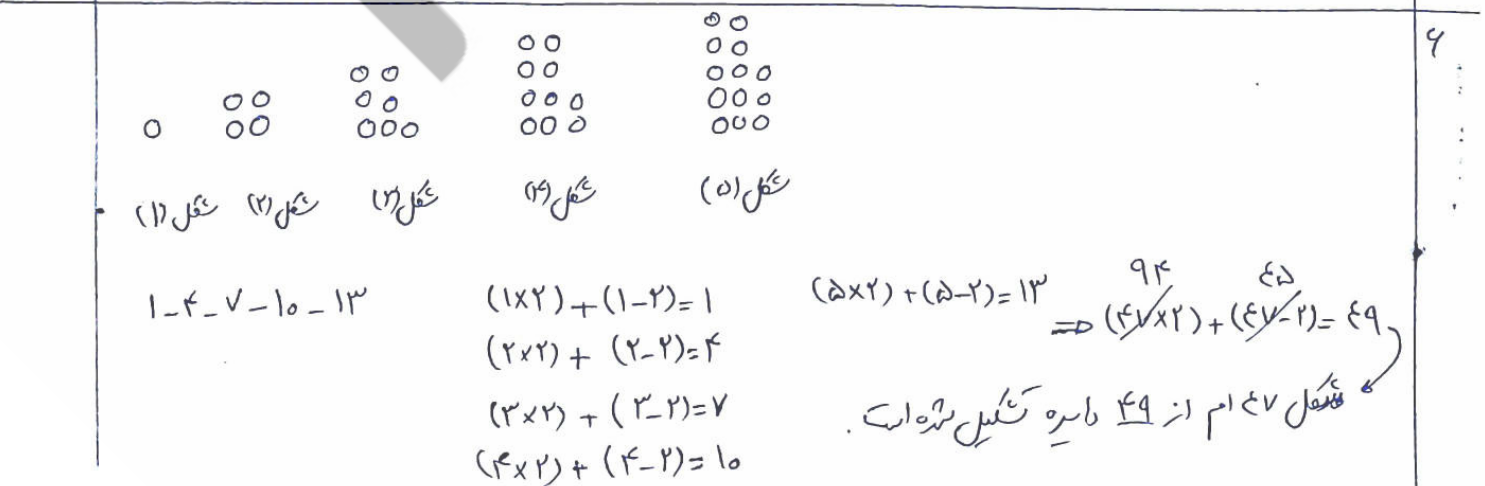 ۶
شکل (۱) شکل (۲) شکل (۳) شکل (۴) شکل (۵)
۱ـ۴ـ۷ـ۱۰ـ۱۳
(۱×۲)+(۱-۲)=۱
(۲×۲)+(۲-۲)=۴
(۳×۲)+(۳-۲)=۷
(۴×۲)+(۴-۲)=۱۰
(۵×۲)+(۵-۲)=۱۳
۹۴ ۴۵
⇒ (۴۷×۲)+(۴۷-۲)=۴۹
شکل ۴۷ ام از ۴۹ دایره تشکیل شده است.